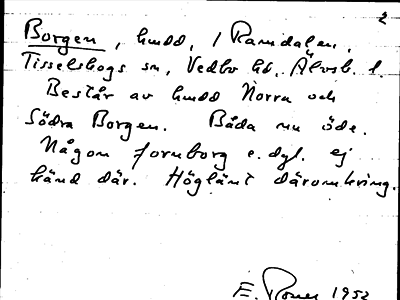 2
Borgen, hmdd, i Ramdalen,
Tisselskogs sn, Vedbo hd, Älvsb. l
Består av hmdd Norra och
Södra Borgen. Båda nu öde.
Någon fornborg e. dyl. ej
känd där. Höglänt däromkring.
E. 1952